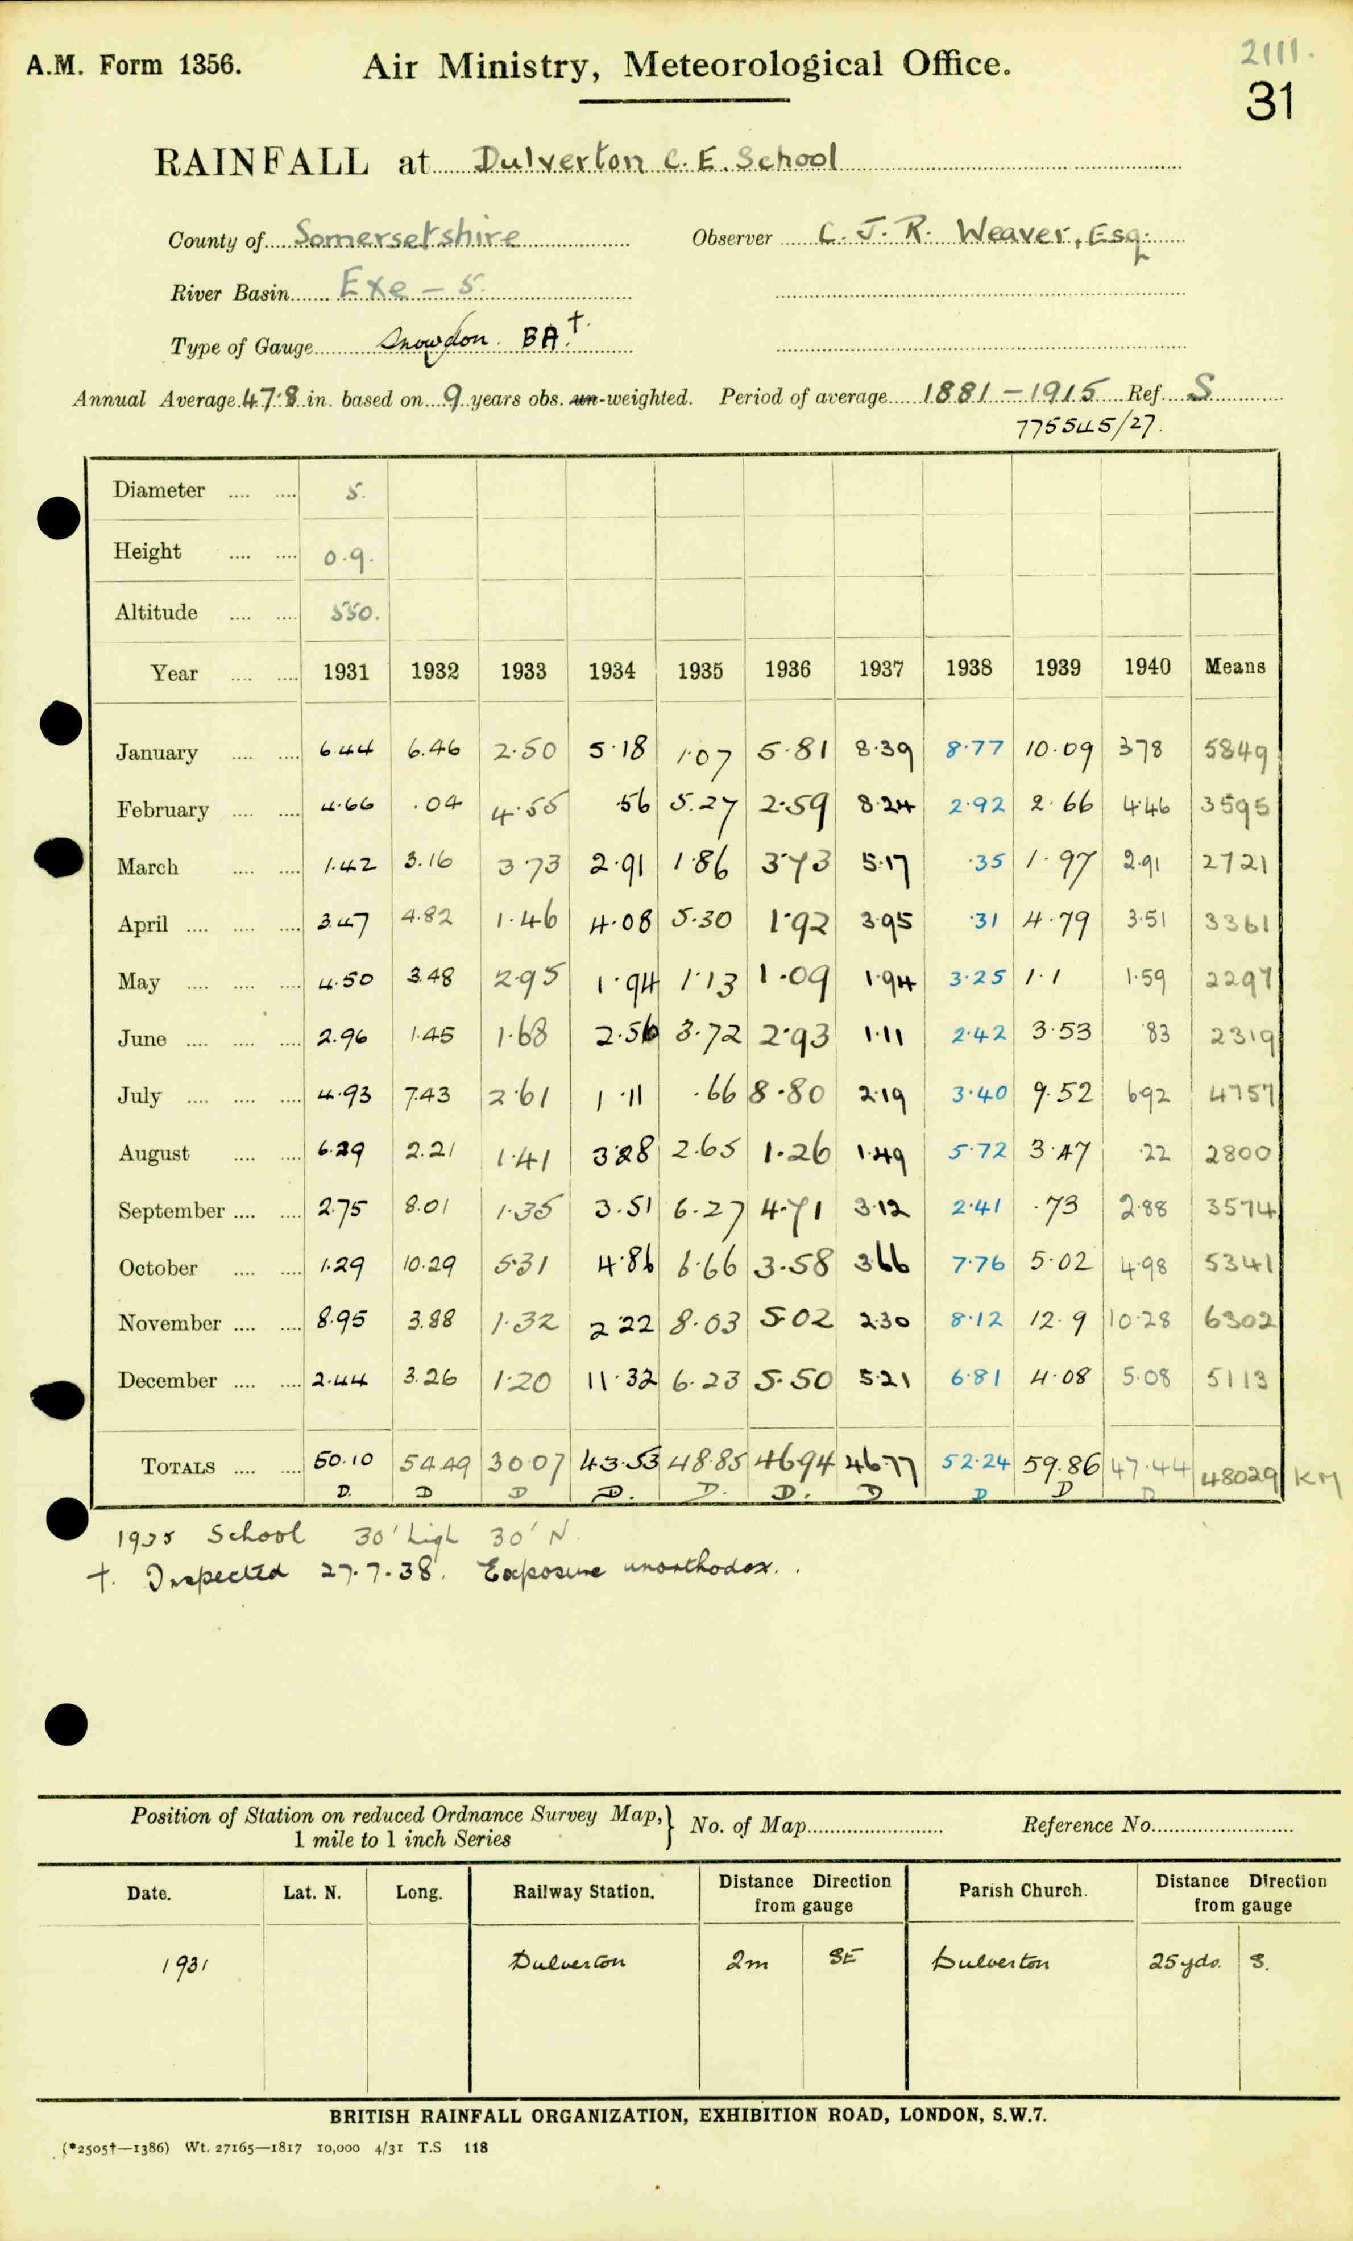 2111.
A.M. Form 1356. Air Ministry, Meteorological Office.
31
RAINFALL at Dulverton C. E. School
County of Somersetshire Observer C. J. R. Weaver, Esq.
River Basin Exe – 5.
Type of Gauge Snowdon. BA.†
Annual Average 47.8 in. based on 9 years obs. un-weighted. Period of average 1881 – 1915 Ref. S
775545/27.
Diameter .... .... 5.
Height .... .... 0.9.
Altitude .... .... 550.
Year .... .... 1931 1932 1933 1934 1935 1936 1937 1938 1939 1940 Means
January .... .... 6.44 6.46 2.50 5.18 1.07 5.81 8.39 8.77 10.09 3.78 5849
February .... .... 4.66 .04 4.55 .56 5.27 2.59 8.24 2.92 2.66 4.46 3595
March .... .... 1.42 3.16 3.73 2.91 1.86 3.43 5.17 .35 1.97 2.91 2721
April .... .... .... 3.47 4.82 1.46 4.08 5.30 1.92 3.95 .31 4.79 3.51 3361
May .... .... .... 4.50 3.48 2.95 1.94 1.13 1.09 1.94 3.25 1.1 1.59 2297
June .... .... .... 2.96 1.45 1.68 2.56 3.72 2.93 1.11 2.42 3.53 .83 2319
July .... .... .... 4.93 7.43 2.61 1.11 .66 8.80 2.19 3.40 9.52 6.92 4757
August .... .... 6.29 2.21 1.41 3.28 2.65 1.26 1.49 5.72 3.47 .22 2800
September .... .... 2.75 8.01 1.35 3.51 6.27 4.71 3.12 2.41 .73 2.88 3574
October .... .... 1.29 10.29 5.31 4.86 6.66 3.58 3.66 7.76 5.02 4.98 5341
November .... .... 8.95 3.88 1.32 2.22 8.03 5.02 2.30 8.12 12.9 10.28 6302
December .... .... 2.44 3.26 1.20 11.32 6.23 5.50 5.21 6.81 4.08 5.08 5113
TOTALS .... .... 50.10 54.49 30.07 43.53 48.85 46.94 46.77 52.24 59.86 47.44 48029 KM
D. D D D. D. D. D D D D
1935 School 30' high 30' N.
†. Inspected 27.7.38. Exposure unorthodox.
Position of Station on reduced Ordnance Survey Map, } No. of Map Reference No.
1 mile to 1 inch Series
Date. Lat. N. Long. Railway Station. Distance Direction from gauge Parish Church. Distance Direction from gauge
1931 Dulverton 2m SE Dulverton 25yds. S.
BRITISH RAINFALL ORGANIZATION, EXHIBITION ROAD, LONDON, S.W.7.
(*2505†—1386) Wt. 27165—1817 10,000 4/31 T.S 118